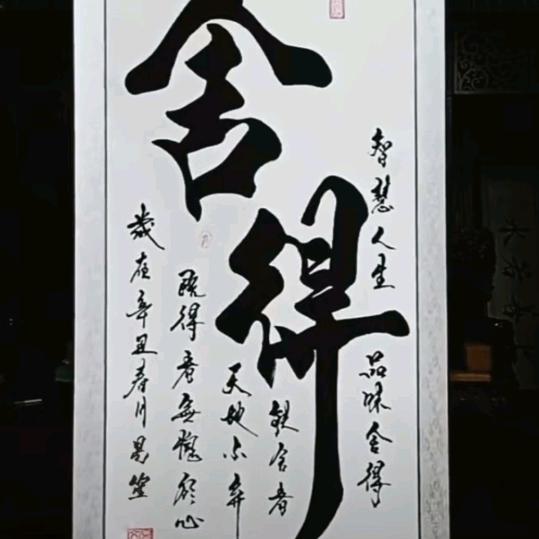 舍得
智慧人生 品味舍得
舍者
天地不弃
既得者無愧於心
歲在辛丑春月